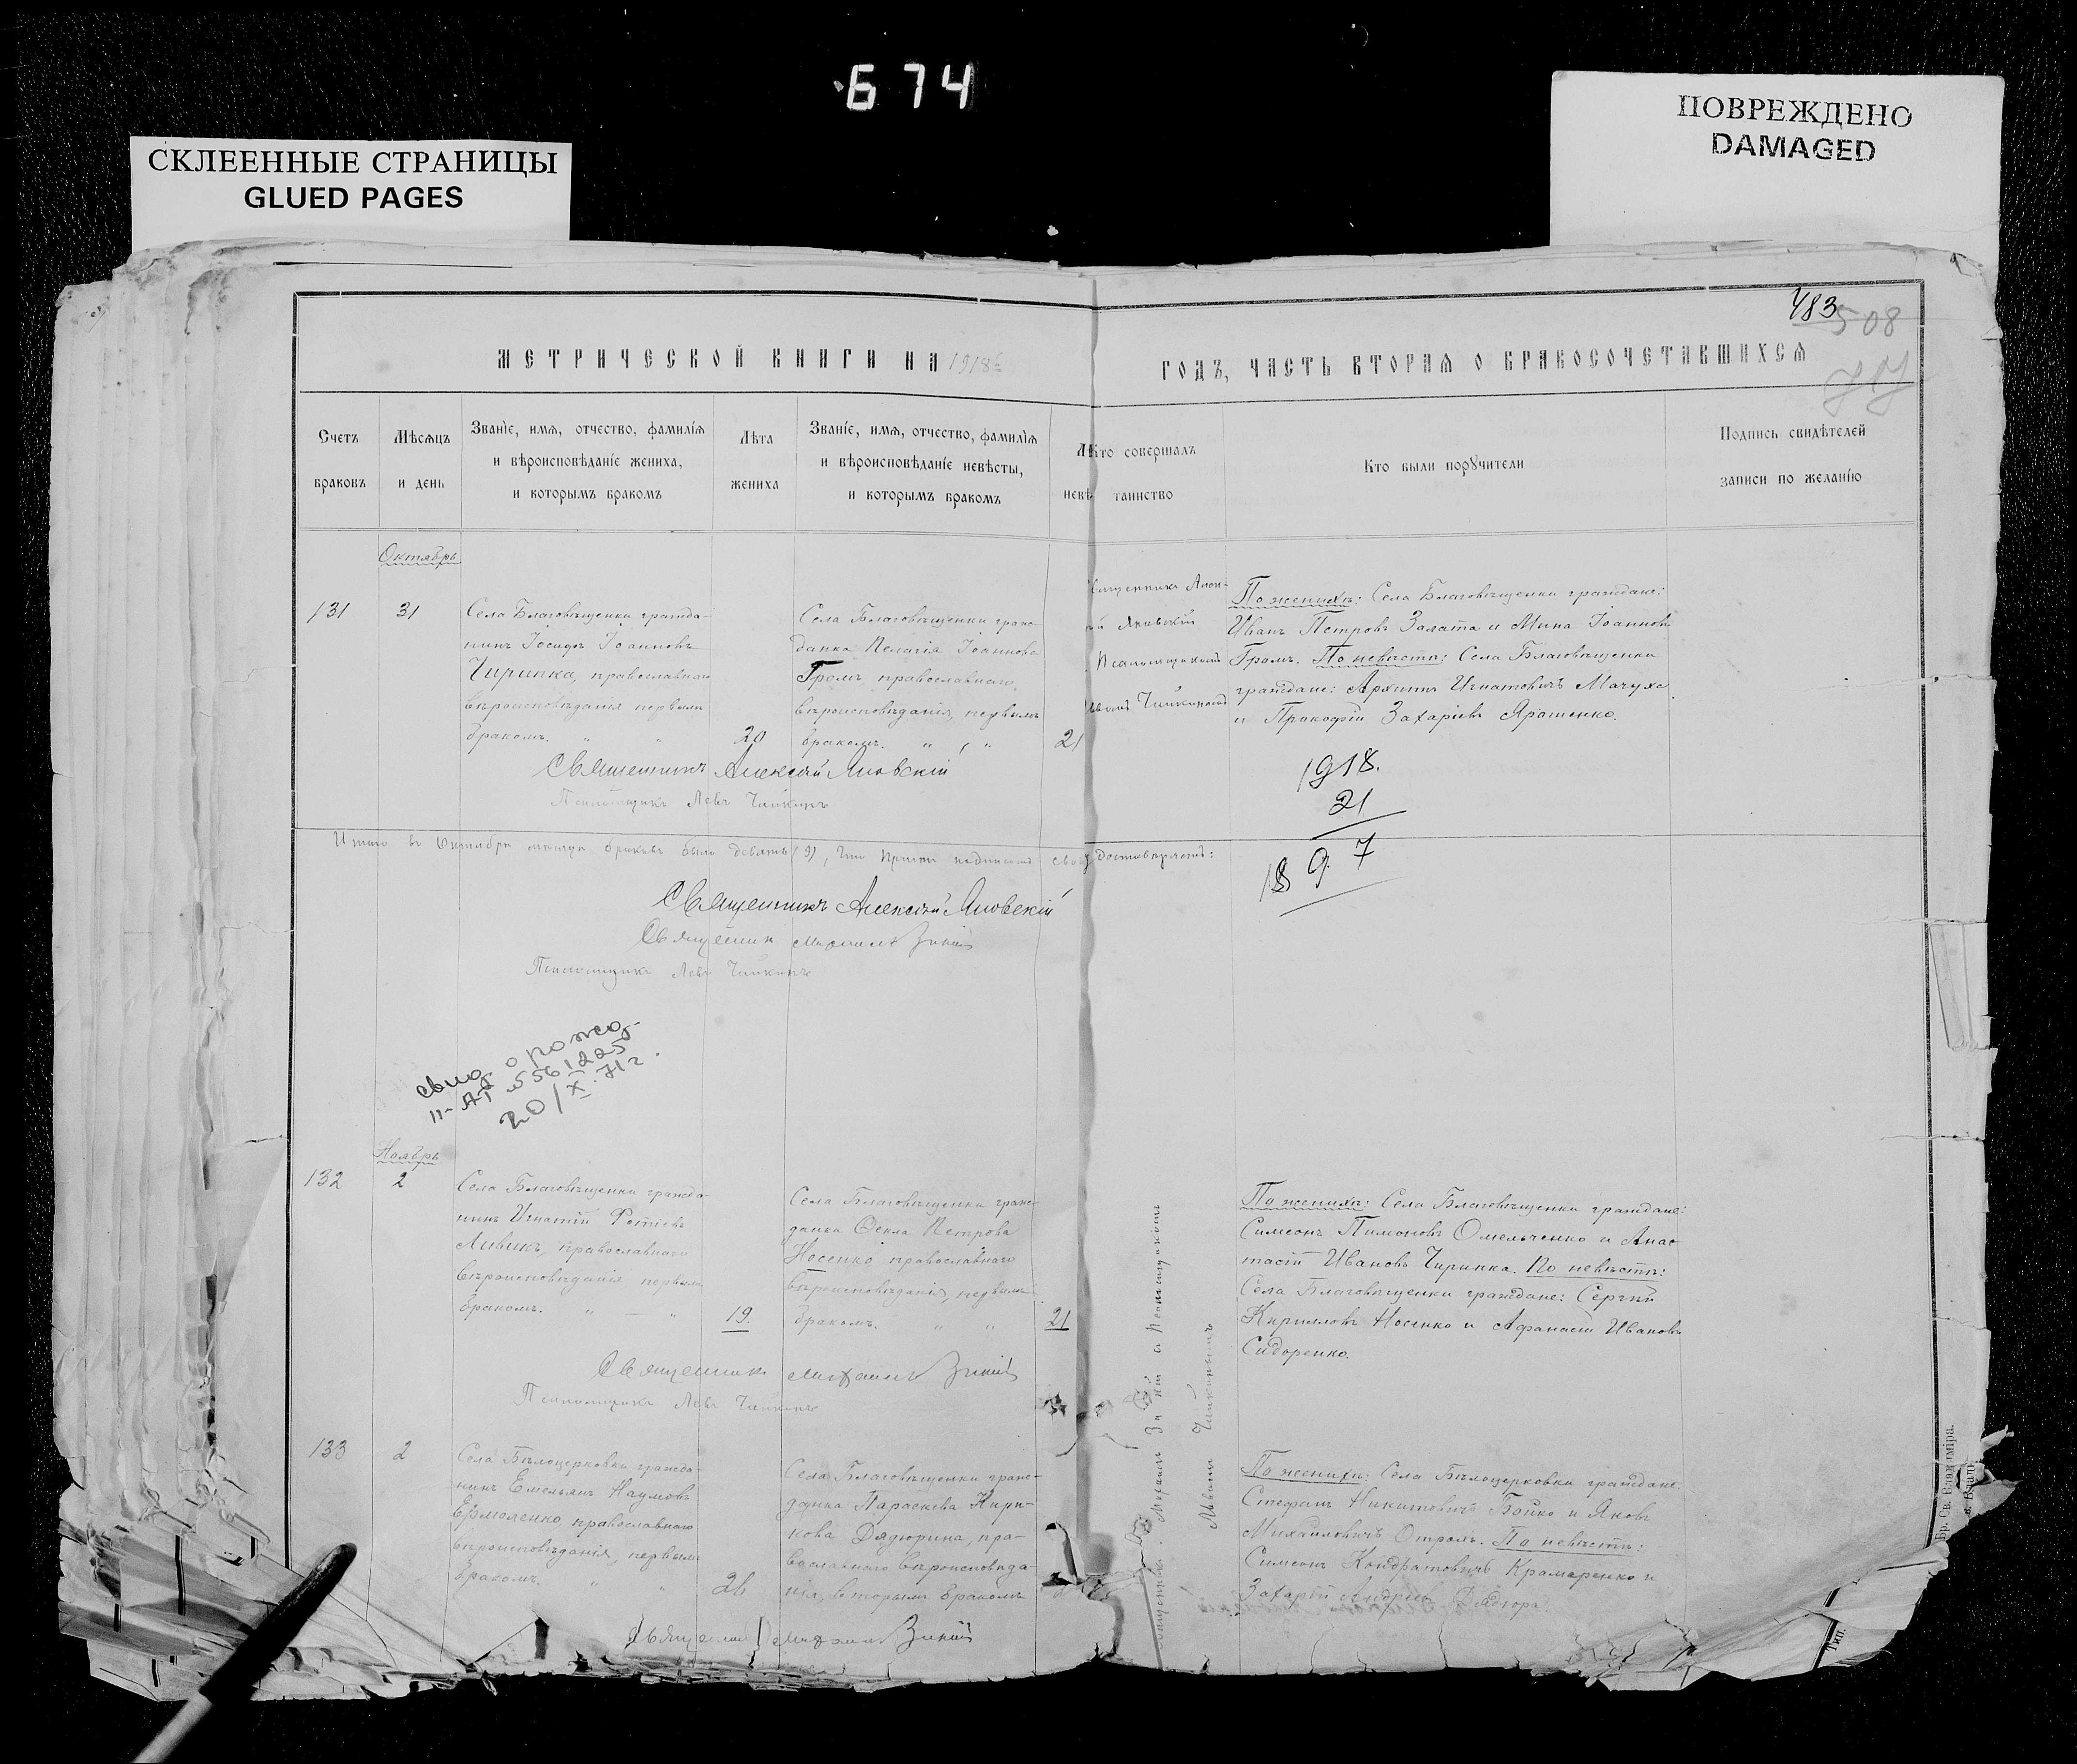 674
СКЛЕЕННЫЕ СТРАНИЦЫ
GLUED PAGES
ПОВРЕЖДЕНО
DAMAGED
483
508
МЕТРИЧЕСКОЙ КНИГИ НА 1918 ГОДЪ, ЧАСТЬ ВТОРАЯ О БРАКОСОЧЕТАВШИХСЯ
Счетъ
браковъ
Мѣсяцъ
и день
Званіе, имя, отчество, фамилія
и вѣроисповѣданіе жениха,
и которымъ бракомъ
Лѣта
жениха
Званіе, имя, отчество, фамилія
и вѣроисповѣданіе невѣсты,
и которымъ бракомъ
Лѣ
невѣ
Кто совершалъ
таинство
Кто были поручители
Подпись свидѣтелей
записи по желанію
Октябрь
131
31
Села Благовѣщенки гражда-
нинъ Іосифъ Іоанновъ
Чиринка, православнаго
вѣроисповѣданія первымъ
бракомъ. " "
20
Села Благовѣщенки граж-
данка Пелагія Іоаннова
Громъ, православнаго
вѣроисповѣданія, первымъ
бракомъ. " "
21
Яновскій
Псаломщикомъ
Чайкинымъ
По женихѣ: Села Благовѣщенки граждане:
Иванъ Петровъ Залата и Мина Іоанновъ
Громъ. По невѣстѣ: Села Благовѣщенки
граждане: Архипъ Игнатовичъ Мачухо
и Прокофій Захаріевъ Ярошенко.
Священникъ Алексѣй Яновскій
Псаломщикъ Левъ Чайкинъ
1918.
21
1897
Итого въ Октябрѣ мѣсяцѣ браковъ было девять (9), что подписомъ свидѣтельствуемъ:
Священникъ Алексѣй Яновскій
Священник Михаилъ Зикій
Псаломщикъ Левъ Чайкинъ
свид. о рожд.
II-АП 5561225
20/X.71г.
Ноябрь
132
2
Села Благовѣщенки гражда-
нинъ Игнатій Фотіевъ
Ливикъ, православнаго
вѣроисповѣданія первымъ
бракомъ. " "
19.
Села Благовѣщенки граж-
данка Ѳекла Петрова
Носенко православнаго
вѣроисповѣданія, первымъ
бракомъ. " "
21
По женихѣ: Села Благовѣщенки граждане:
Симеонъ Пимоновъ Омельченко и Анас-
тасій Ивановъ Чиринка. По невѣстѣ:
Села Благовѣщенки граждане: Сергѣй
Кирилловъ Носенко и Афанасій Ивановъ
Сидоренко.
Священник Михаилъ Зикій
Псаломщикъ Левъ Чайкинъ
Михаилъ Зикій и Псаломщикомъ
Львомъ Чайкинымъ
133
2
Села Бѣлоцерковки гражда-
нинъ Емельянъ Наумовъ
Ермоленко, православнаго
вѣроисповѣданія, первымъ
бракомъ. " "
26
Села Благовѣщенки граж-
данка Параскева Кири-
кова Дядюрина, пра-
вославнаго вѣроисповѣда-
нія, вторымъ бракомъ
По женихѣ: Села Бѣлоцерковки граждане:
Стефанъ Никитовичъ Бойко и Яковъ
Михайловичъ Отрохъ. По невѣстѣ:
Симеонъ Кондратовичъ Крамаренко и
Захарій Андріевъ Дядюра.
Священник Михаилъ Зикій
Бр. Св. Владиміра.
Тип.